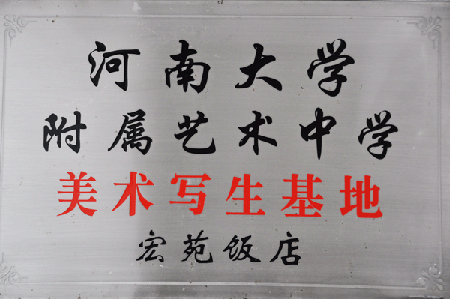 河南大学
附属艺术中学
美术写生基地
宏苑饭店